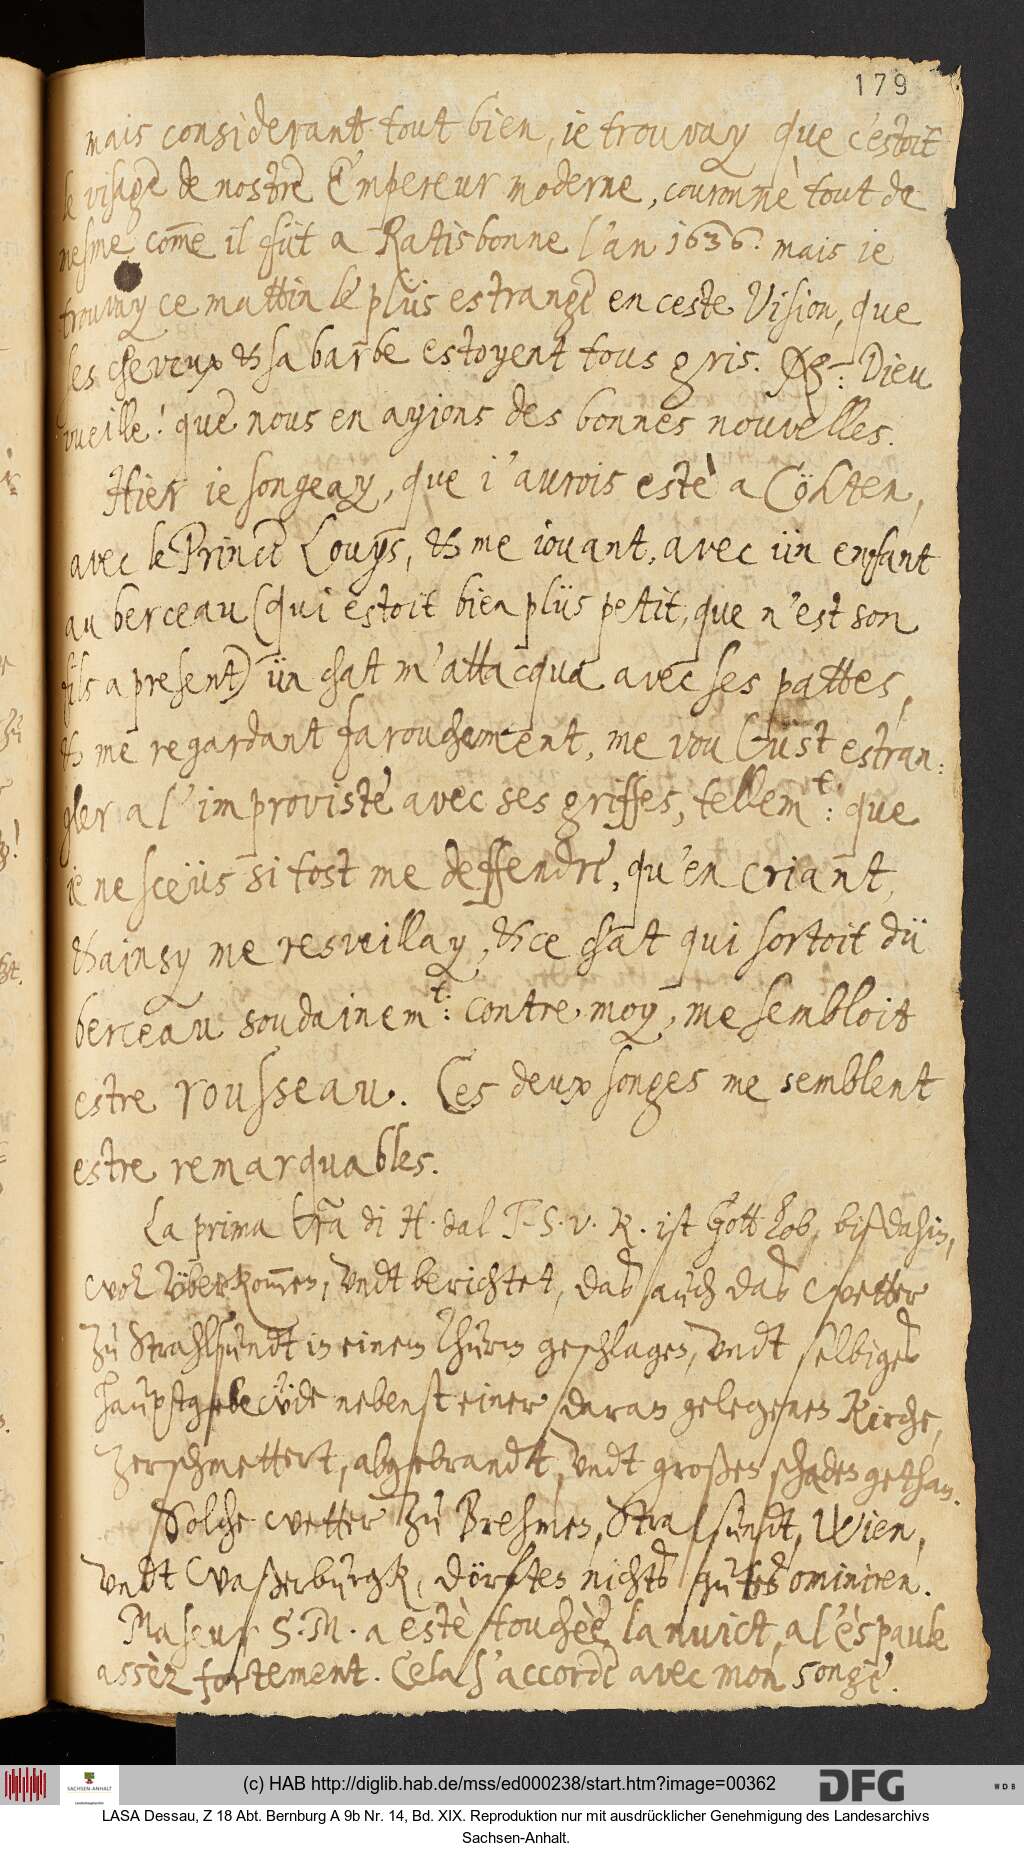 179
mais considerant tout bien, ie trouvay que c'estoit
le visage de nostre Empereur moderne, couronnè tout de
mesme com̄e il füt a Ratisbonne l'an 1636. mais ie
trouvay ce mattin le plüs estrange en ceste Vision, que
ses cheveux & sa barbe estoyent tous gris. Dieu
vueille! que nous en ayions des bonnes nouvelles.
Hier ie songeay, que i'aurois estè a Cöhten,
avec le Prince Louys, & me iouant, avec ün enfant
au berceau (qui estoit bien plüs petit, que n'est son
fils a present) ün chat m'attacqua avec ses pattes,
& me regardant farouchement, me voulüst estran:
gler a l'improviste avec ses griffes, tellem^t: que
ie ne sceüs si tost me deffendre, qu'en criant,
& ainsy me resveillay, & ce chat qui sortoit dü
berceau soudainem^t: contre moy, me sembloit
estre rousseau. Ces deux songes me semblent
estre remarquables.
La prima l̄ra di H. dal T. S. v. K. ist Gott lob, biß dahin,
wol vberkom̄en, vndt berichtet, das auch das wetter
zu Strahlsundt in einem Thurm geschlagen, vndt selbiges
hauptgebewde nebenst einer daran gelegenen Kirche,
zerschmettert, abgebrandt, vndt großen schaden gethan.
Solche wetter zu Brehmen, Stralsundt, Wien,
vndt Waßerburgk, dörften nichts gutes ominiren.
Ma seur S. M. a estè touchèe, la nuict, a l'èspaule
assèz fortement. Cela s'accorde avec mon songe.
(c) HAB http://diglib.hab.de/mss/ed000238/start.htm?image=00362
DFG
WDB
SACHSEN-ANHALT
LASA Dessau, Z 18 Abt. Bernburg A 9b Nr. 14, Bd. XIX. Reproduktion nur mit ausdrücklicher Genehmigung des Landesarchivs
Sachsen-Anhalt.